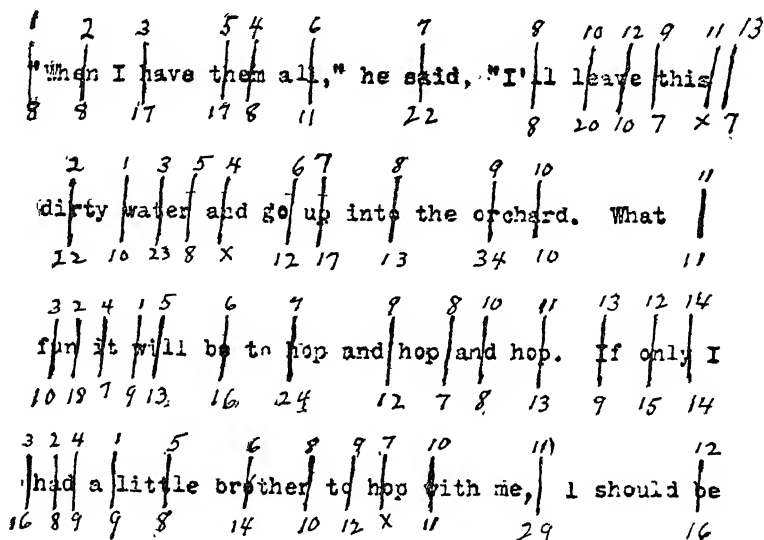 1 2 3 5 4 6 7 8 10 12 9 11 13
"When I have them all," he said, "I'll leave this
8 8 17 17 8 11 22 8 20 10 7 x 7
2 1 3 5 4 6 7 8 9 10 11
dirty water and go up into the orchard. What
12 10 23 8 x 12 17 13 34 10 11
3 2 4 1 5 6 7 9 8 10 11 13 12 14
fun it will be to hop and hop and hop. If only I
10 18 7 9 13 16 24 12 7 8 13 9 15 14
3 2 4 1 5 6 8 9 7 10 11 12
had a little brother to hop with me, I should be
16 8 9 9 8 14 10 12 x 11 29 16